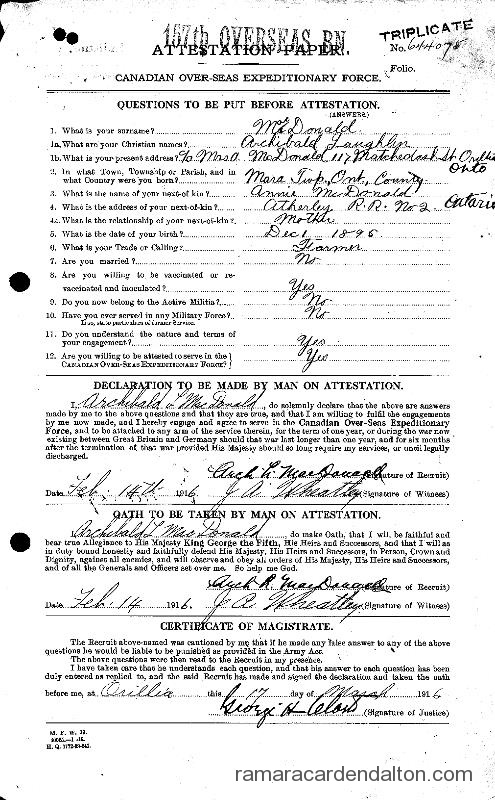 157th OVERSEAS BN
ATTESTATION PAPER.
TRIPLICATE
No.
Folio.
CANADIAN OVER-SEAS EXPEDITIONARY FORCE.
QUESTIONS TO BE PUT BEFORE ATTESTATION.
(ANSWERS)
1. What is your surname? McDonald
1a. What are your Christian names? Archibald Laughlin
1b. What is your present address? c/o Mrs A. McDonald 117 Matchedash St Orillia Onto
2. In what Town, Township or Parish, and in what Country were you born? Mara Twp, Ont, County
3. What is the name of your next-of-kin? Annie McDonald
4. What is the address of your next-of-kin? Atherley R.R. No 2 Ontario
4a. What is the relationship of your next-of-kin? Mother
5. What is the date of your birth? Dec 1 1896
6. What is your Trade or Calling? Farmer
7. Are you married? No
8. Are you willing to be vaccinated or re-
vaccinated and inoculated? Yes
9. Do you now belong to the Active Militia? No
10. Have you ever served in any Military Force? No
If so, state particulars of former Service.
11. Do you understand the nature and terms of
your engagement? Yes
12. Are you willing to be attested to serve in the
CANADIAN OVER-SEAS EXPEDITIONARY FORCE? Yes
DECLARATION TO BE MADE BY MAN ON ATTESTATION.
I, Archibald L MacDonald, do solemnly declare that the above are answers
made by me to the above questions and that they are true, and that I am willing to fulfil the engagements
by me now made, and I hereby engage and agree to serve in the Canadian Over-Seas Expeditionary
Force, and to be attached to any arm of the service therein, for the term of one year, or during the war now
existing between Great Britain and Germany should that war last longer than one year, and for six months
after the termination of that war provided His Majesty should so long require my services, or until legally
discharged.
Arch L. MacDonald (Signature of Recruit)
Date Feb 14th 1916 J A Wheatley (Signature of Witness)
OATH TO BE TAKEN BY MAN ON ATTESTATION.
I, Archibald L MacDonald, do make Oath, that I will be faithful and
bear true Allegiance to His Majesty King George the Fifth, His Heirs and Successors, and that I will as
in duty bound honestly and faithfully defend His Majesty, His Heirs and Successors, in Person, Crown and
Dignity, against all enemies, and will observe and obey all orders of His Majesty, His Heirs and Successors,
and of all the Generals and Officers set over me. So help me God.
Arch MacDonald (Signature of Recruit)
Date Feb. 14 1916. J A Wheatley (Signature of Witness)
CERTIFICATE OF MAGISTRATE.
The Recruit above-named was cautioned by me that if he made any false answer to any of the above
questions he would be liable to be punished as provided in the Army Act.
The above questions were then read to the Recruit in my presence.
I have taken care that he understands each question, and that his answer to each question has been
duly entered as replied to, and the said Recruit has made and signed the declaration and taken the oath
before me, at Orillia this 17 day of March 1916
George H (Signature of Justice)
M. F. W. 23.
H. Q. 1772-39-841.
ramaracardendalton.com/